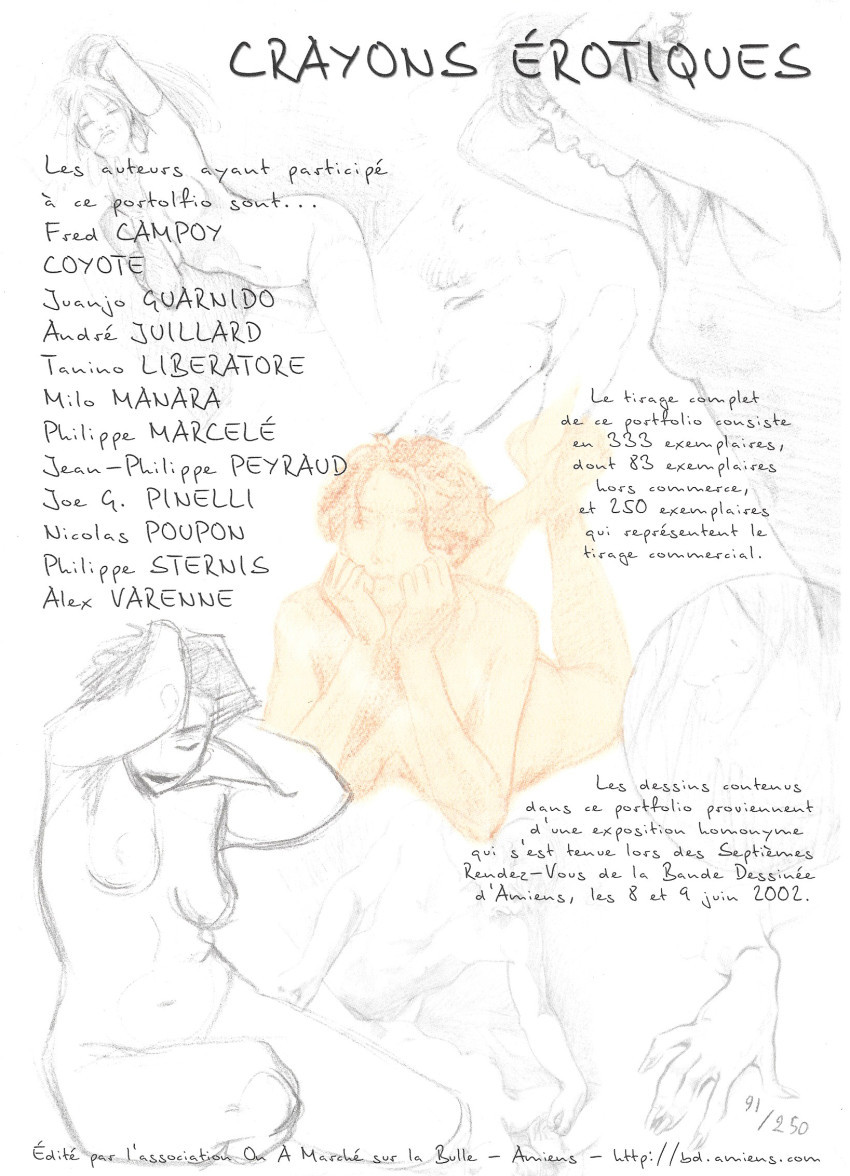 CRAYONS ÉROTIQUES
Les auteurs ayant participé
à ce portolfio sont...
Fred CAMPOY
COYOTE
Juanjo GUARNIDO
André JUILLARD
Tanino LIBERATORE
Milo MANARA
Philippe MARCELÉ
Jean-Philippe PEYRAUD
Joe G. PINELLI
Nicolas POUPON
Philippe STERNIS
Alex VARENNE
Le tirage complet
de ce portfolio consiste
en 333 exemplaires,
dont 83 exemplaires
hors commerce,
et 250 exemplaires
qui représentent le
tirage commercial.
Les dessins contenus
dans ce portfolio proviennent
d'une exposition homonyme
qui s'est tenue lors des Septièmes
Rendez-Vous de la Bande Dessinée
d'Amiens, les 8 et 9 juin 2002.
91/250
Édité par l'association On A Marché sur la Bulle - Amiens - http://bd.amiens.com